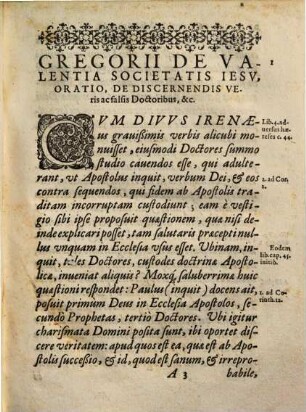 1
GREGORII DE VA-
LENTIA SOCIETATIS IESV,
ORATIO, DE DISCERNENDIS VE-
ris ac falsis Doctoribus, &c.
CVM DIVVS IRENÆ-
us grauissimis verbis alicubi mo-
nuisset, eiusmodi Doctores summo
studio cauendos esse, qui adulte-
rant, vt Apostolus inquit, verbum Dei, & eos
contra sequendos, qui fidem ab Apostolis tra-
ditam incorruptam custodiunt; eam è vesti-
gio sibi ipse proposuit quæstionem, quæ nisi de-
inde explicari posset, tam salutaris præcepti nul-
lus vnquam in Ecclesia vsus esset. Vbinam, in-
quit, tales Doctores, custodes doctrinæ Aposto-
licæ, inueniat aliquis? Moxq́; saluberrimè huic
quæstioni respondet: Paulus (inquit) docens ait,
posuit primum Deus in Ecclesia Apostolos, se-
cundò Prophetas, tertiò Doctores. Vbi igitur
charismata Domini posita sunt, ibi oportet dis-
cere veritatem: apud quos est ea, quæ est ab Apo-
stolis successio, & id, quod est sanum, & irrepro-
A 3 babile,
Lib. 4. ad-
uersus hæ-
reses c. 44.
2. ad Cor.
Eodem
lib. cap. 45.
initio.
1. ad Co-
rinth. 12.